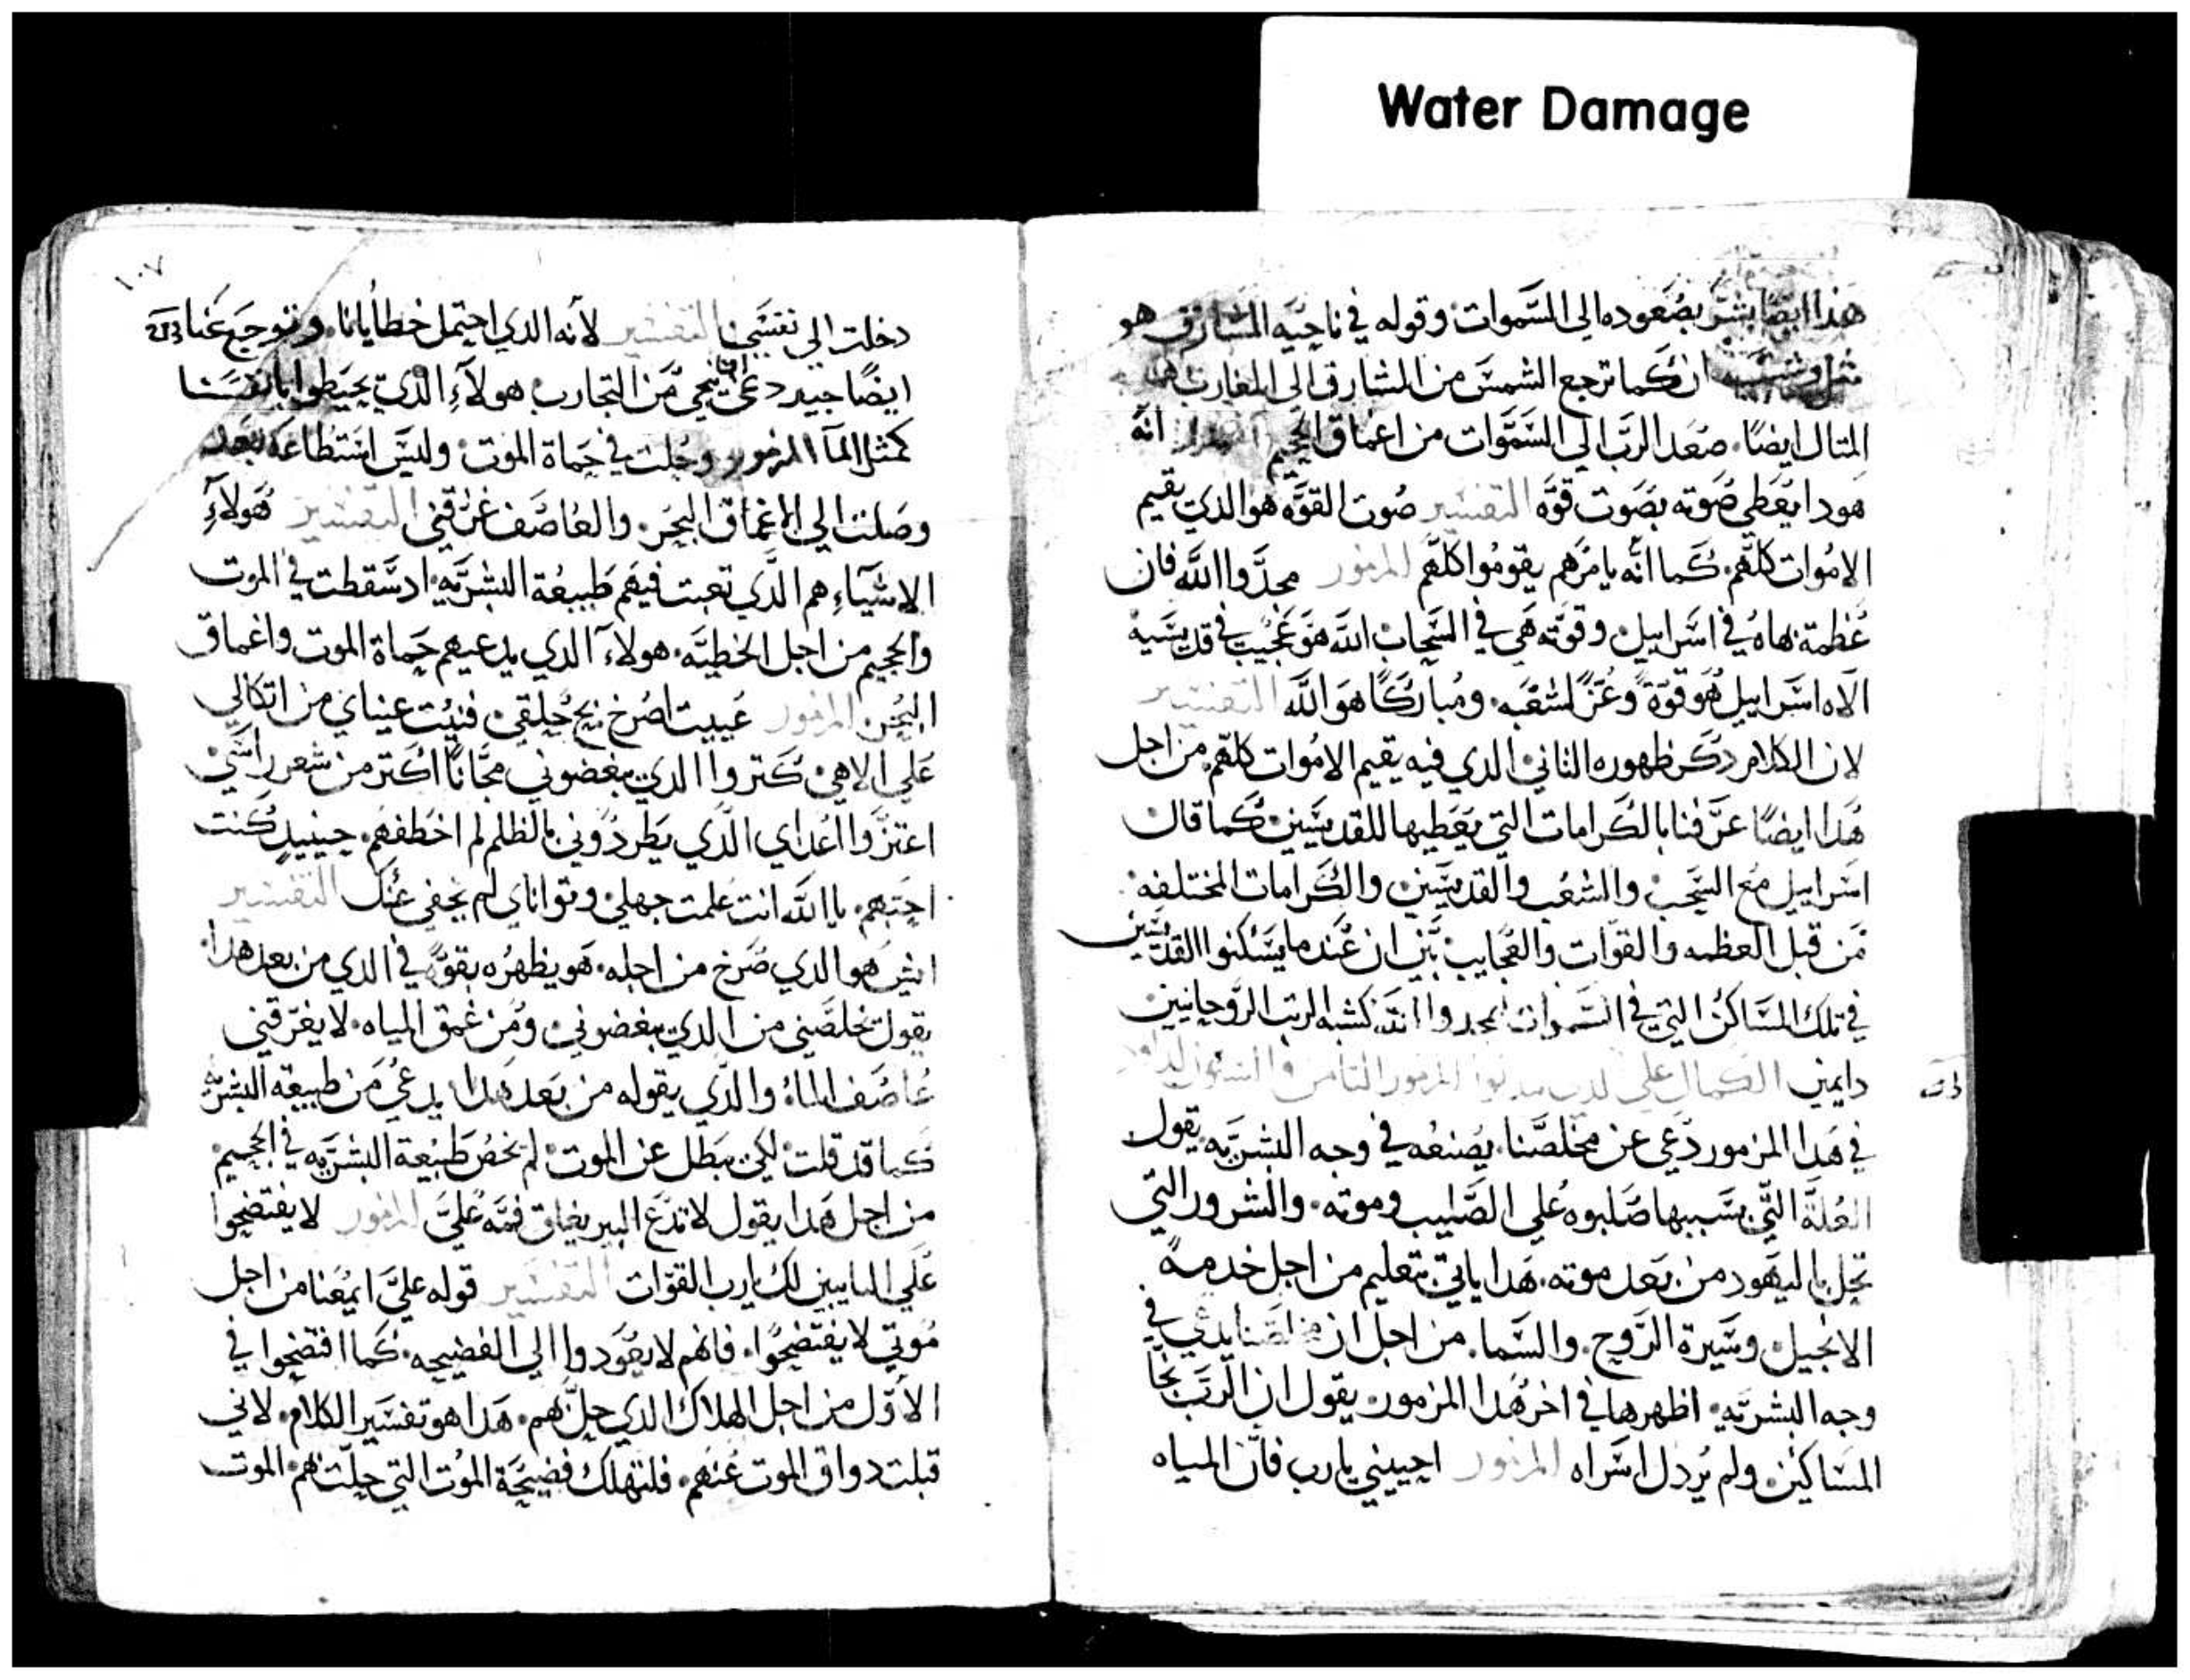 Water Damage
هذا ايضًا بشر بصعوده الى السموات وقوله في ناحيه المشارق هو
ان كما ترجع الشمس من المشارق الى المغارب
المتال ايضًا. صعد الرب الى السموات من اعماق الجحيم المزمور انه
هودا يعطي صوته بصوت قوه التفسير صوت القوه هو الدي يقيم
الاموات كلهم. كما انه يامرهم يقوموا كلهم المزمور مجدوا الله فان
عظمة بهاه في اسراييل وقوته هي في السحاب الله هو عجيب في قديسيه
الاه اسراييل هو قوة وعز لشعبه. ومباركًا هو الله التفسير
لان الكلام دكر ظهوره التاني الدي فيه يقيم الاموات كلهم من اجل
هدا ايضًا عرفنا بالكرامات التي يعطيها للقديسين كما قال
اسراييل مع السحب والشعب والقديسين والكرامات المختلفه
من قبل العظمه والقوات والعجايب بين ان عندما يسكنوا القديسين
في تلك المساكن التي في السموات يمجدوا الله كشبه الرتب الروحانيين
دايمين الكمال علي المزمور التامن والستون لداود
في هدا المزمور دعي عن مخلصنا. يصنعه في وجه البشريه يقول
العلة التي بسببها صلبوه علي الصليب وموته. والشرور التي
تحل باليهود من بعد موته. هدا ياتي بتعليم من اجل خدمة
الانجيل وسيرة الروح. والسما. من اجل ان مخلصنا يدعي في
وجه البشريه. اظهرها في اخر هدا المزمور يقول ان الرب نجا
المساكين ولم يردل اسراه المزمور احييني يارب فان المياه
١٠٧
دخلت الي نفسي التفسير لأنه الدي احتمل خطايانا. وتوجع عنا
ايضًا جيد دعي من التجارب هولاءِ الدي يحيطوا بانفسنا
كمثل المآ المزمور وحلت في حماة الموت وليس استطاعة بعد
وصلت الي اعماق البحر. والعاصف غرقني التفسير هولاءِ
الاشياءِ هم الدي تعبت فيهم طبيعة البشريه ادسقطت في الموت
والجحيم من اجل الخطيه. هولاء الدي يدعيهم حماة الموت واعماق
البحر المزمور عييت اصرخ بح حلقي فنيت عيناي من اتكالي
علي الاهي كتروا الدي يبغضوني مجانًا اكتر من شعر راسي
اعتزوا اعداي الدي يطردوني بالظلم لم اخطفهم. حينيدٍ كنت
اجبهم. يا الله انت علمت جهلي وتواناي لم يخفي عنك التفسير
ايش هو الدي صرخ من اجله. هو يظهره بقوه في الدي من بعد هدا
يقول خلصيني من الدي يبغضوني ومن عمق المياه. لا يغرقني
عاصف الماء والدي يقوله من بعد هدا يدعي من طبيعة البشريه
كما قد قلت لكي يبطل عن الموت لم يخص طبيعة البشريه في الجحيم
من اجل هدا يقول لا تدع البير يغلق فمه عليَّ المزمور لا يفتضحوا
علي التايبين لك يارب القوات التفسير قوله عليَّ ايمعنا من اجل
موتي لا يفتضحوا. فانهم لا يقودوا الي الفضيحه. كما افتضحوا في
الاول من اجل الهلاك الدي حل بهم. هدا هو تفسير الكلام. لاني
قبلت دواق الموت عنهم. فلتهلك فضيحة الموت التي حلت بهم الموت